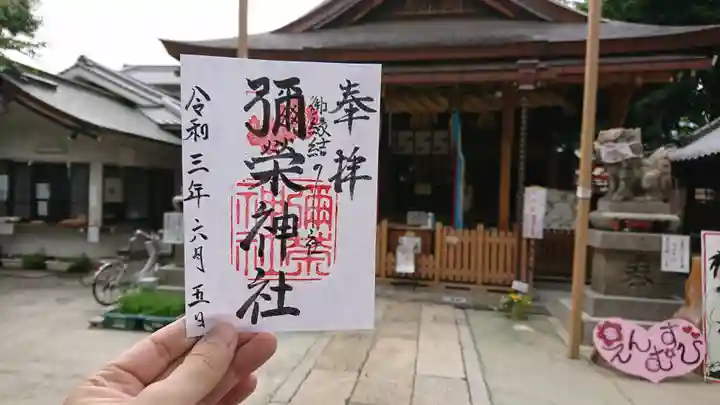 奉拝
御縁結びの社
彌栄神社
彌榮神社
令和三年六月五日
えんむすび